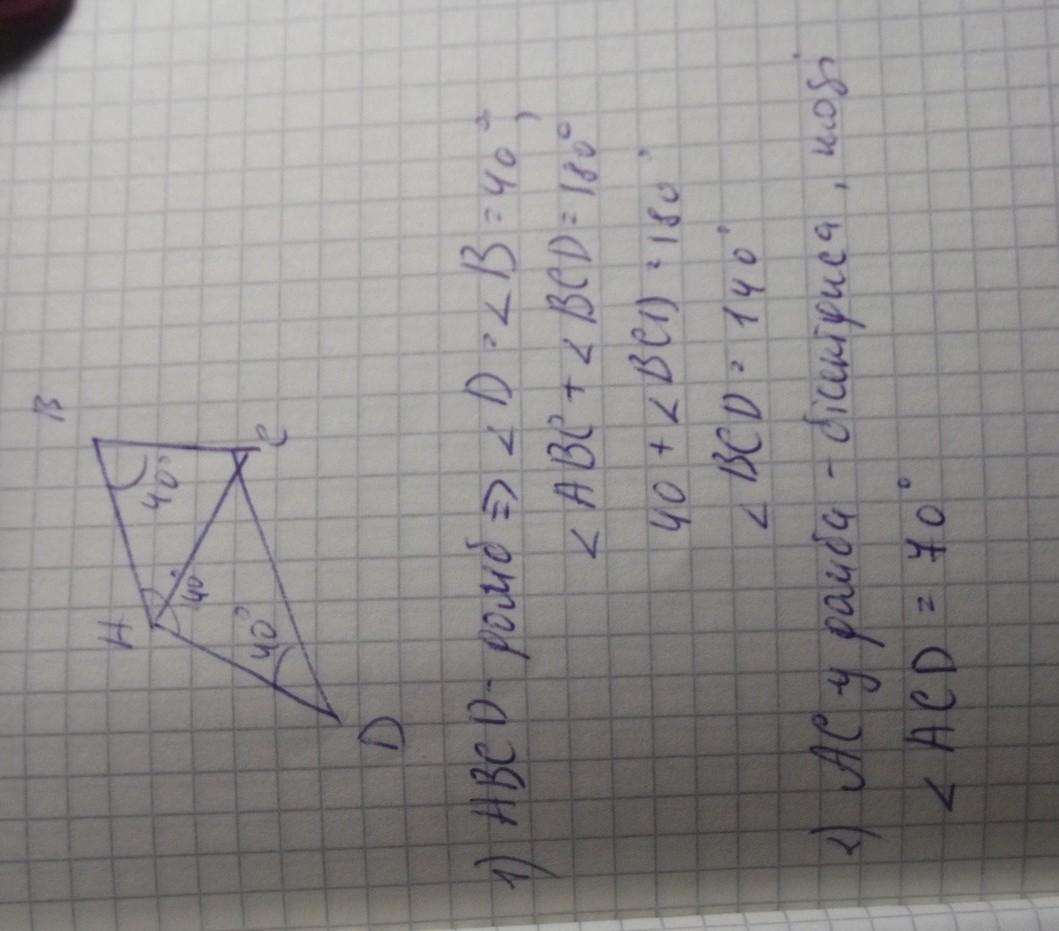 B
A
40°
C
140°
40°
D
1) ABCD - ромб => < D = < B = 40°,
< ABC + < BCD = 180°
40 + < BCD = 180°
< BCD = 140°
2) AC у ромба - бісектриса, тоді
< ACD = 70°